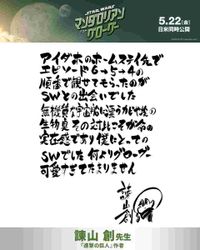 STAR WARS
マンダロリアン
グローグー
5.22(金)
日米同時公開
アイダホのホームステイ先で
エピソード6→5→4の
順番で観せてもらったのが
SWとの出会いでした
無機質な宇宙船に漂うカビや埃の
生物臭 その対比こそが命の
実在感であり僕にとっての
SWでした 何よりグローグーが
可愛すぎてたまりません
諫山創
諫山 創先生
「進撃の巨人」作者